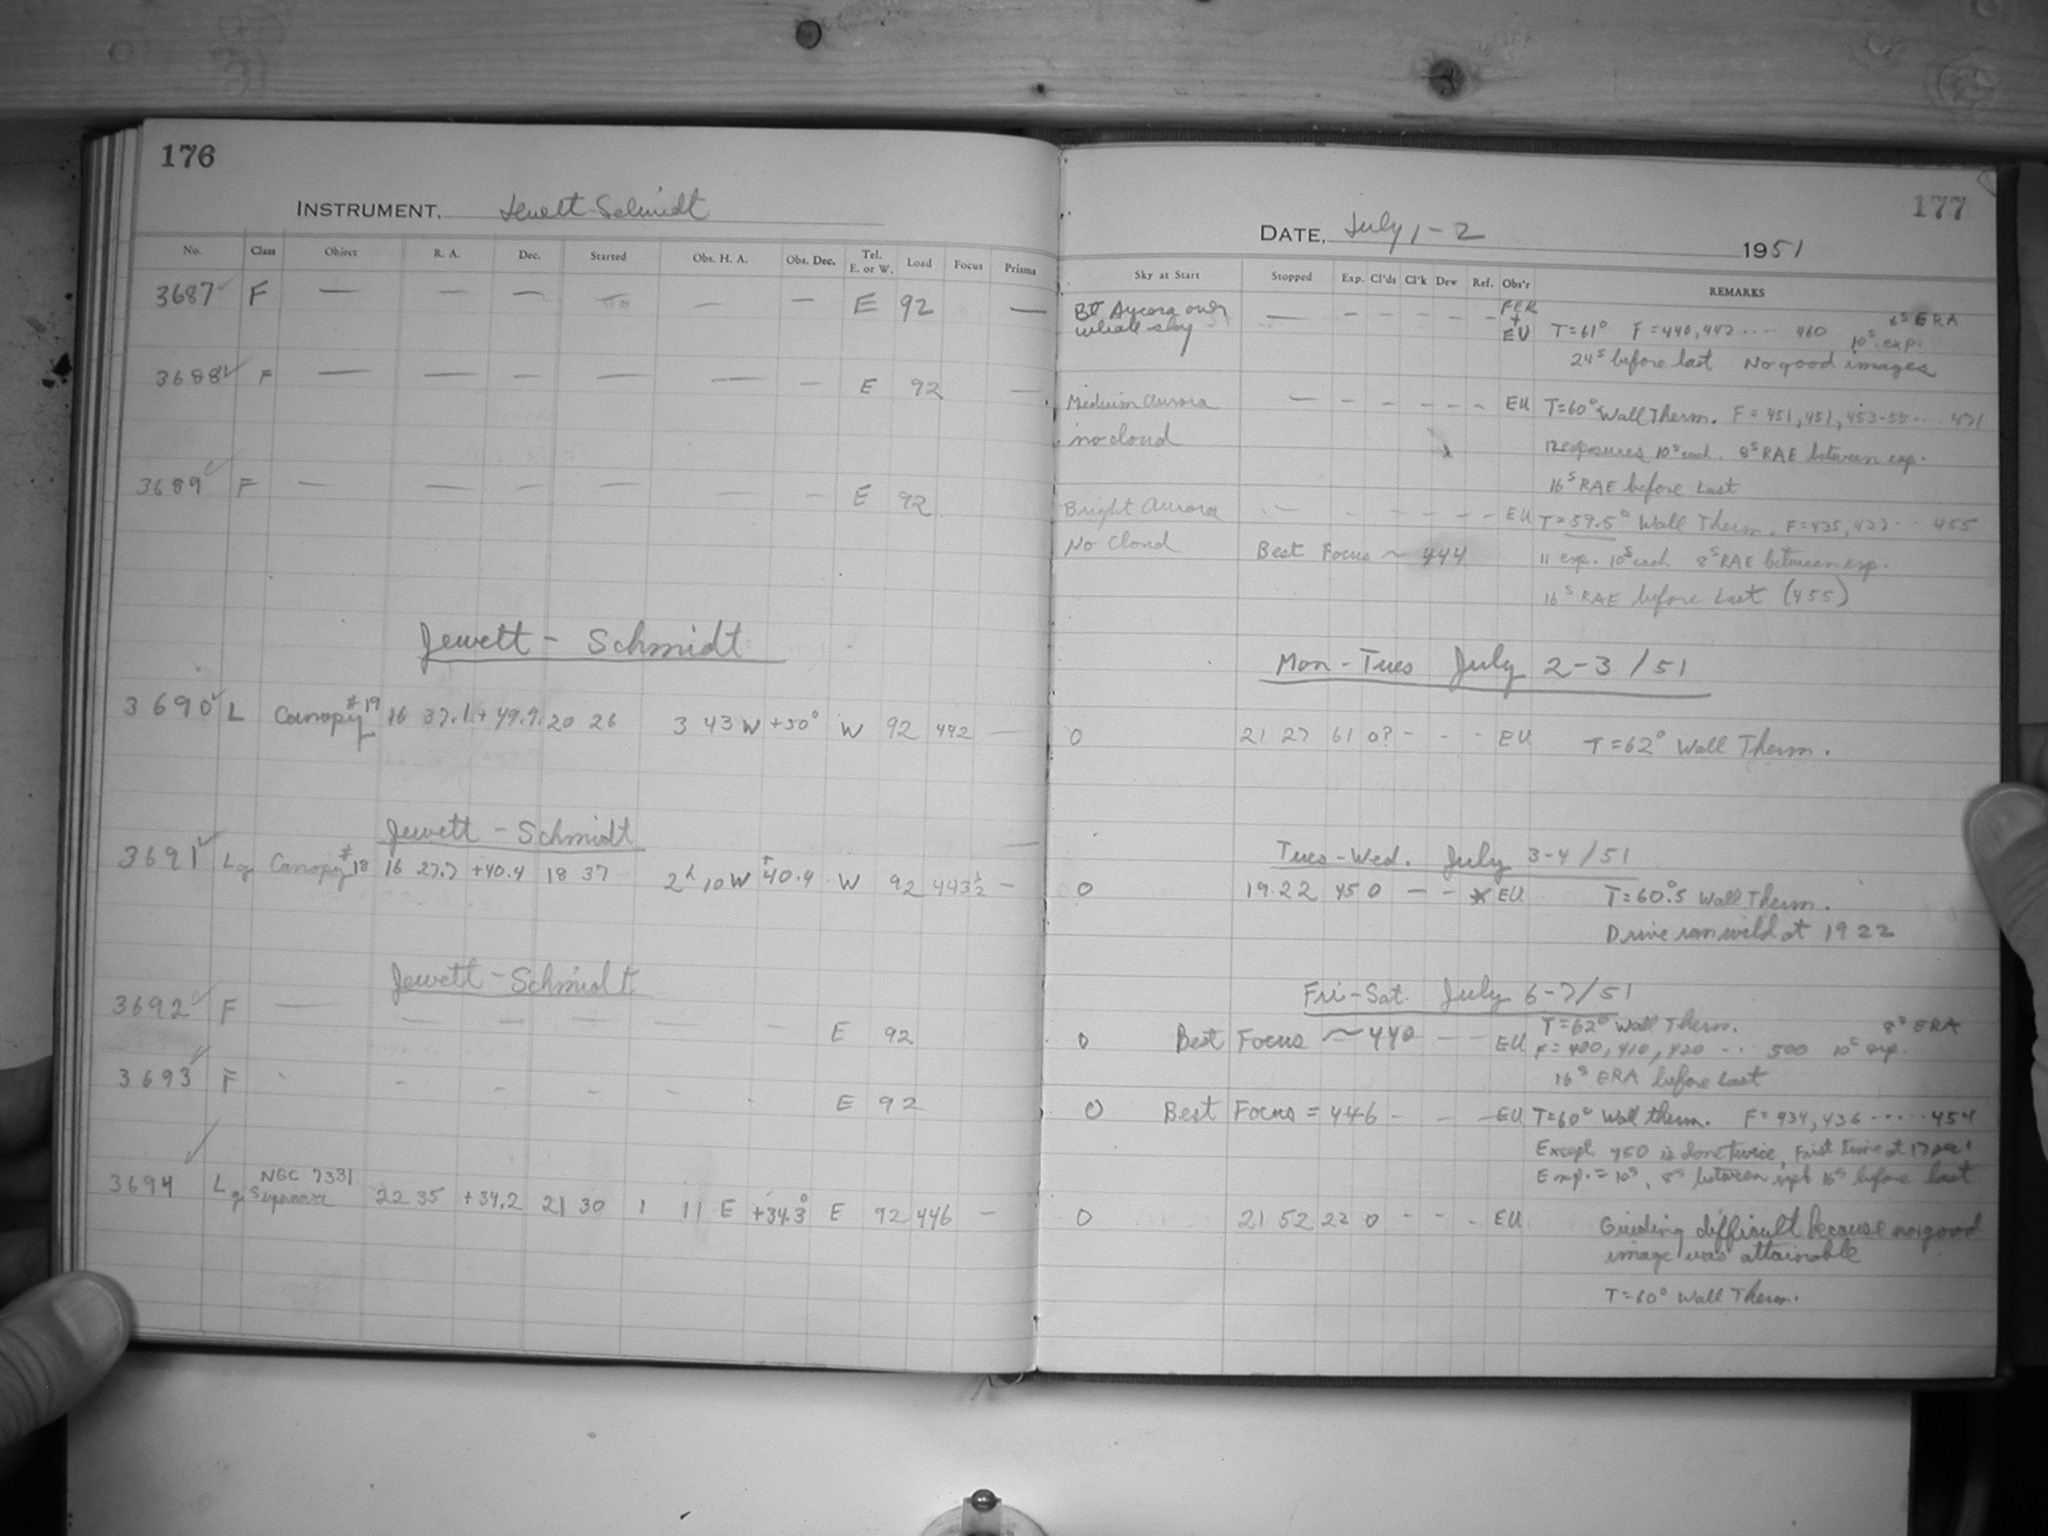 176
INSTRUMENT. Jewett-Schmidt
No. Class Object R. A. Dec. Started Obs. H. A. Obs. Dec. Tel. E. or W. Load Focus Prisms
3687 ✓ F — — — — — E 92 —
3688 ✓ F — — — — — — E 92 —
3689 ✓ F — — — — — — E 92
Jewett - Schmidt
3690 ✓ L Canopy #19 16 37.1 +49.9 20 26 3 43 W +50° W 92 442 —
Jewett - Schmidt
3691 ✓ Lg Canopy #18 16 27.7 +40.4 18 37 2h 10 W +40.4 W 92 443½ —
Jewett - Schmidt
3692 ✓ F — — — — — — E 92
3693 ✓ F - - - - - E 92
3694 ✓ Lg NGC 7331
Supnova 22 35 +34.2 21 30 1 11 E +34.3° E 92 446 —
177
DATE. July 1-2 1951
Sky at Start Stopped Exp. Cl'ds Cl'k Dew Ref. Obs'r REMARKS
Bt Aurora over
whole sky — - - - - - + EU T=61° F=440,442 .... 460 10s exp. 6s ERA
24s before last No good images
Medium aurora — - - - - - EU T=60° Wall Therm. F=451,451,453-55-.. 471
no cloud
12 exposures 10s each. 8s RAE between exp.
16s RAE before Last
Bright Aurora — - - - - - EU T=59.5° Wall Therm. F=435,437-.. 455
No Cloud Best Focus ~ 444 11 exp. 10s each 8s RAE between exp.
16s RAE before Last (455)
Mon-Tues July 2-3/51
0 21 27 61 0? - - - EU T=62° Wall Therm.
Tues-Wed. July 3-4/51
0 19 22 45 0 — - * EU T=60°.5 Wall Therm.
Drive ran wild at 1922
Fri-Sat. July 6-7/51
0 Best Focus ~440 — - EU T=62° Wall Therm. 8s ERA
F=400,410,420 ... 500 10s exp.
16s ERA before Last
0 Best Focus = 446 - - - EU T=60° Wall therm. F=434,436 ..... 454
Except 450 is done twice, First time at
Exp.=10s, 8s between expt 16s before last
0 21 52 22 0 - - - EU Guiding difficult because no good
image was attainable
T=60° Wall Therm.